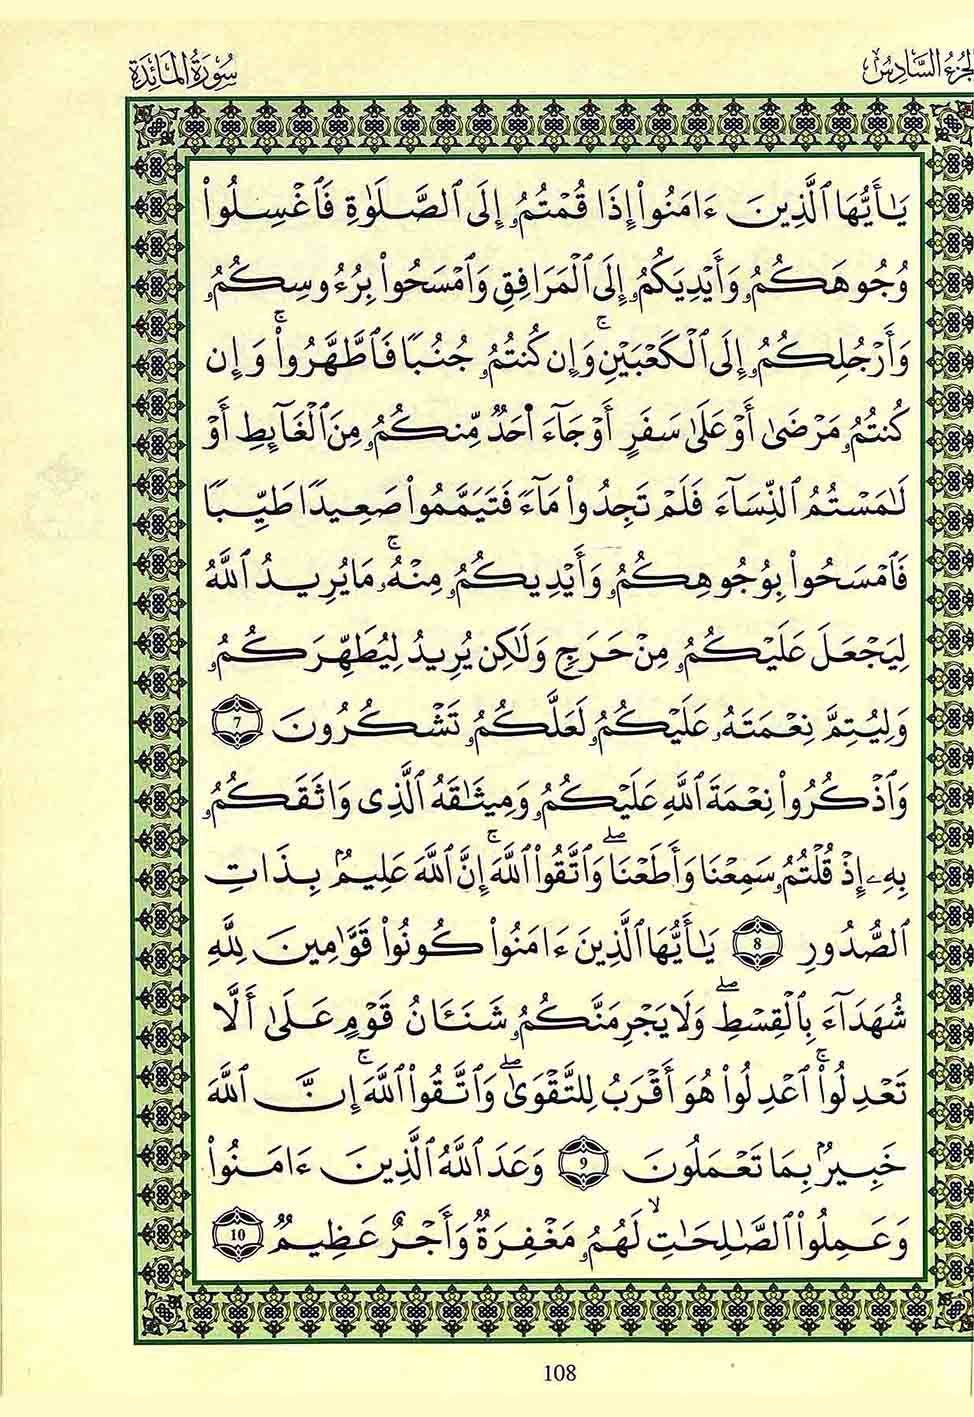 الجزء السادس
سورة المائدة
يَٰٓأَيُّهَا ٱلَّذِينَ ءَامَنُوٓا۟ إِذَا قُمْتُمُۥٓ إِلَى ٱلصَّلَوٰةِ فَٱغْسِلُوا۟
وُجُوهَكُمُۥ وَأَيْدِيَكُمُۥٓ إِلَى ٱلْمَرَافِقِ وَٱمْسَحُوا۟ بِرُءُوسِكُمُۥ
وَأَرْجُلِكُمُۥٓ إِلَى ٱلْكَعْبَيْنِۚ وَإِن كُنتُمُۥ جُنُبًا فَٱطَّهَّرُوا۟ۚ وَإِن
كُنتُمُۥ مَرْضَىٰٓ أَوْ عَلَىٰ سَفَرٍ أَوْ جَآءَ أَحَدٌ مِّنكُمُۥ مِنَ ٱلْغَآئِطِ أَوْ
لَٰمَسْتُمُ ٱلنِّسَآءَ فَلَمْ تَجِدُوا۟ مَآءً فَتَيَمَّمُوا۟ صَعِيدًا طَيِّبًا
فَٱمْسَحُوا۟ بِوُجُوهِكُمُۥ وَأَيْدِيكُمُۥ مِنْهُۥۚ مَا يُرِيدُ ٱللَّهُ
لِيَجْعَلَ عَلَيْكُمُۥ مِنْ حَرَجٍ وَلَٰكِن يُرِيدُ لِيُطَهِّرَكُمُۥ
وَلِيُتِمَّ نِعْمَتَهُۥ عَلَيْكُمُۥ لَعَلَّكُمُۥ تَشْكُرُونَ 7
وَٱذْكُرُوا۟ نِعْمَةَ ٱللَّهِ عَلَيْكُمُۥ وَمِيثَٰقَهُ ٱلَّذِى وَاثَقَكُمُۥ
بِهِۦٓ إِذْ قُلْتُمُۥ سَمِعْنَا وَأَطَعْنَاۖ وَٱتَّقُوا۟ ٱللَّهَۚ إِنَّ ٱللَّهَ عَلِيمٌۢ بِذَاتِ
ٱلصُّدُورِ 8 يَٰٓأَيُّهَا ٱلَّذِينَ ءَامَنُوا۟ كُونُوا۟ قَوَّٰمِينَ لِلَّهِ
شُهَدَآءَ بِٱلْقِسْطِۖ وَلَا يَجْرِمَنَّكُمُۥ شَنَـَٔانُ قَوْمٍ عَلَىٰٓ أَلَّا
تَعْدِلُوا۟ۚ ٱعْدِلُوا۟ هُوَ أَقْرَبُ لِلتَّقْوَىٰۖ وَٱتَّقُوا۟ ٱللَّهَۚ إِنَّ ٱللَّهَ
خَبِيرٌۢ بِمَا تَعْمَلُونَ 9 وَعَدَ ٱللَّهُ ٱلَّذِينَ ءَامَنُوا۟
وَعَمِلُوا۟ ٱلصَّٰلِحَٰتِۙ لَهُمُۥ مَغْفِرَةٌ وَأَجْرٌ عَظِيمٌ 10
108